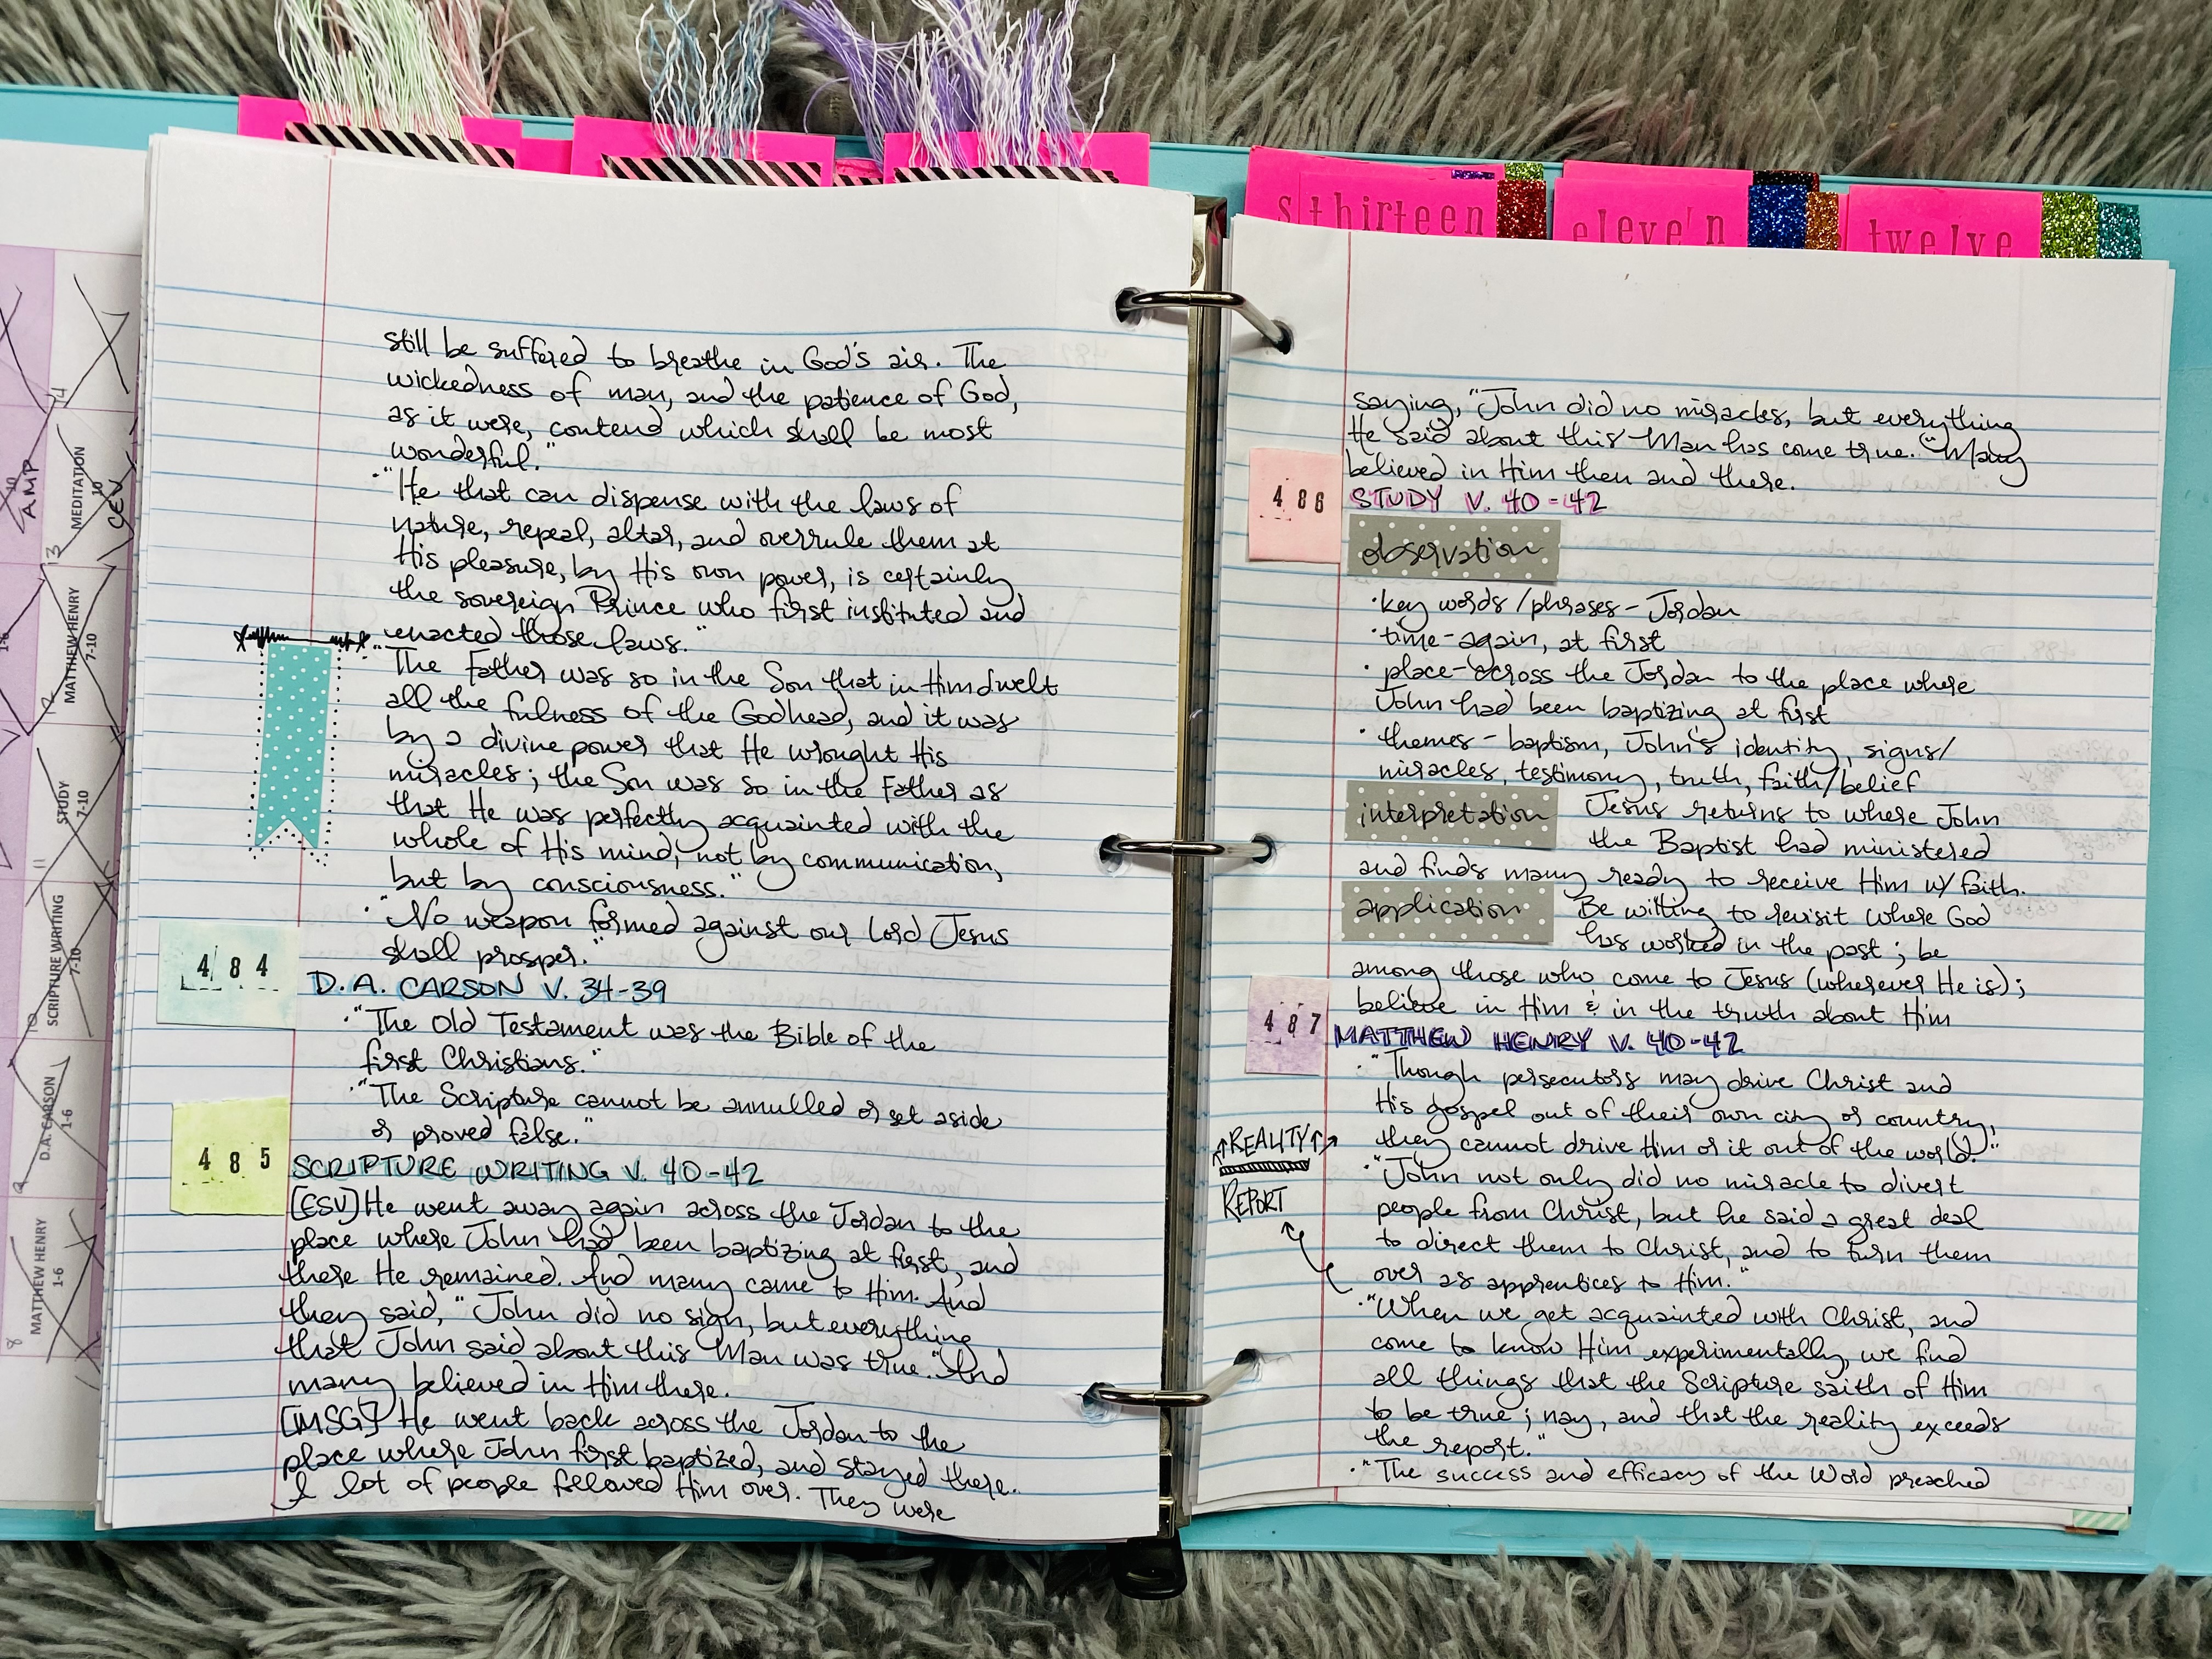 sthirteen
eleven
twelve
14
10
AMP
MEDITATION
10
CEV
13
MATTHEW HENRY
7-10
12
STUDY
7-10
11
SCRIPTURE WRITING
7-10
10
D.A. CARSON
1-6
9
MATTHEW HENRY
1-6
8
still be suffered to breathe in God's air. The
wickedness of man, and the patience of God,
as it were, contend which shall be most
wonderful."
·"He that can dispense with the laws of
nature, repeal, altar, and overrule them at
His pleasure, by His own power, is certainly
the sovereign Prince who first instituted and
enacted those laws."
·"The Father was so in the Son that in Him dwelt
all the fulness of the Godhead, and it was
by a divine power that He wrought His
miracles; the Son was so in the Father as
that He was perfectly acquainted with the
whole of His mind, not by communication,
but by consciousness."
·"No weapon formed against our Lord Jesus
shall prosper."
484 D.A. CARSON V. 34-39
·"The Old Testament was the Bible of the
first Christians."
·"The Scripture cannot be annulled or set aside
or proved false."
485 SCRIPTURE WRITING V. 40-42
[ESV] He went away again across the Jordan to the
place where John had been baptizing at first, and
there He remained. And many came to Him. And
they said, "John did no sign, but everything
that John said about this Man was true." And
many believed in Him there.
[MSG] He went back across the Jordan to the
place where John first baptized, and stayed there.
A lot of people followed Him over. They were
saying, "John did no miracles, but everything
He said about this Man has come true." Many
believed in Him then and there.
486 STUDY V. 40-42
observation
·key words/phrases- Jordan
·time-again, at first
·place-across the Jordan to the place where
John had been baptizing at first
·themes- baptism, John's identity, signs/
miracles, testimony, truth, faith/belief
interpretation Jesus returns to where John
the Baptist had ministered
and finds many ready to receive Him w/ faith.
application Be willing to revisit where God
has worked in the past; be
among those who come to Jesus (wherever He is);
believe in Him & in the truth about Him
487 MATTHEW HENRY V. 40-42
·"Though persecutors may drive Christ and
His gospel out of their own city or country,
they cannot drive Him or it out of the world."
·"John not only did no miracle to divert
people from Christ, but he said a great deal
to direct them to Christ, and to turn them
over as apprentices to Him."
↑REALITY↑
REPORT
·"When we get acquainted with Christ, and
come to know Him experimentally, we find
all things that the Scripture saith of Him
to be true; nay, and that the reality exceeds
the report."
·"The success and efficacy of the Word preached